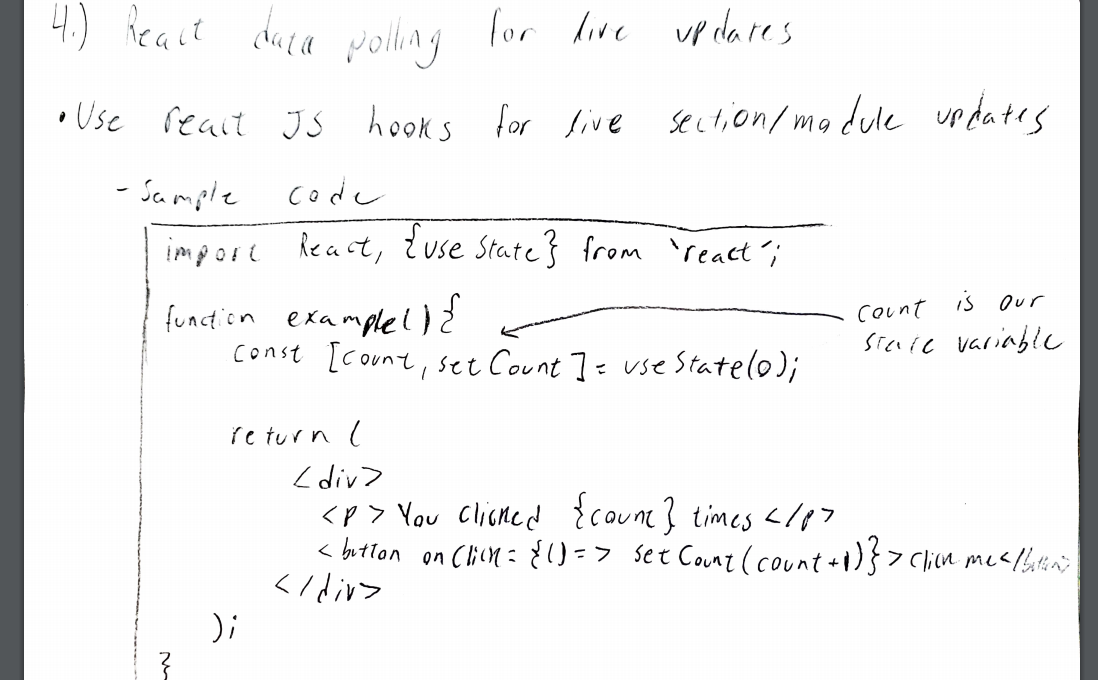 4.) React data polling for live updates
• Use react JS hooks for live section/module updates
- Sample code
import React, {useState} from `react´;
function example() {
count is our
state variable
const [count, setCount] = useState(0);
return (
<div>
<p> You clicked {count} times </p>
<button onClick = {() => setCount(count+1)}> click me</button>
</div>
);
}